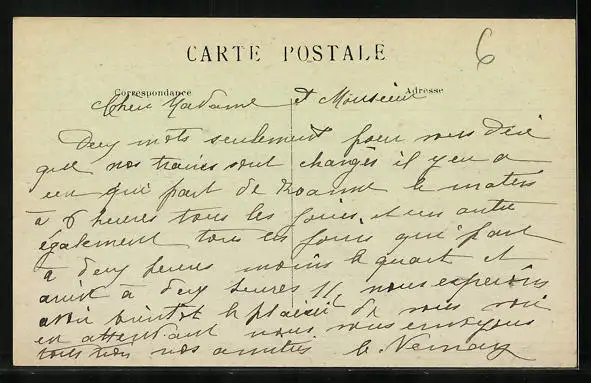 6
CARTE POSTALE
Correspondance
Adresse
Cher Madame et Monsieur
Deux mots seulement pour vous dire
que nos trains sont changés il y en a
un qui part de Roanne le matin
à 6 heures tous les jours et un autre
également tous les jours qui part
à deux heures moins le quart et
arrive à deux heures nous esperons
avoir bientot le plaisir de vous voir
en attendant nous vous envoyons
tous nos amitiés